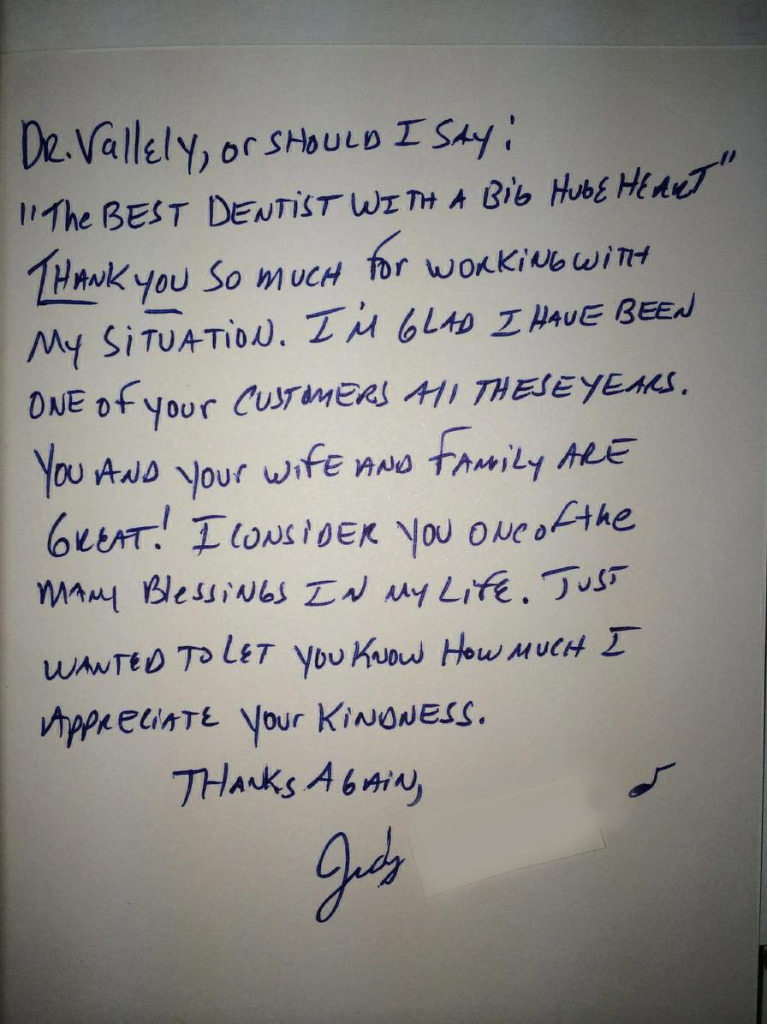 Dr. Vallely, or SHOULD I SAY:
"The BEST DENTIST WITH A BIG HUGE HEART"
THANK YOU SO MUCH for WORKING WITH
MY SITUATION. I'M GLAD I HAVE BEEN
ONE of your CUSTOMERS All THESE YEARS.
YOU AND YOUR WIFE AND FAMILY ARE
GREAT! I CONSIDER YOU ONE of the
MANY BLESSINGS IN MY LIFE. JUST
WANTED TO LET YOU KNOW HOW MUCH I
APPRECIATE YOUR KINDNESS.
THANKS AGAIN,
Judy